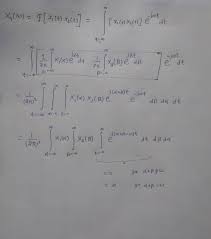 X₃(ω) = F[x₁(t) x₂(t)] = ∫_{t=-∞}^{∞} [x₁(t) x₂(t)] e^{-jωt} dt
= ∫_{t=-∞}^{∞} [ 1/2π ∫_{α=-∞}^{∞} X₁(α) e^{jαt} dα 1/2π ∫_{β=-∞}^{∞} X₂(β) e^{jβt} dβ ] e^{-jωt} dt
= 1/(2π)² ∫ ∫ ∫ X₁(α) X₂(β) e^{j(α+β)t} e^{-jωt} dβ dα dt
= 1/(2π)² ∫_{α=-∞}^{∞} X₁(α) ∫_{β=-∞}^{∞} X₂(β) ∫_{t=-∞}^{∞} e^{j(α+β-ω)t} dt dβ dα
= ∞ α+β=ω
= 0 α+β≠ω